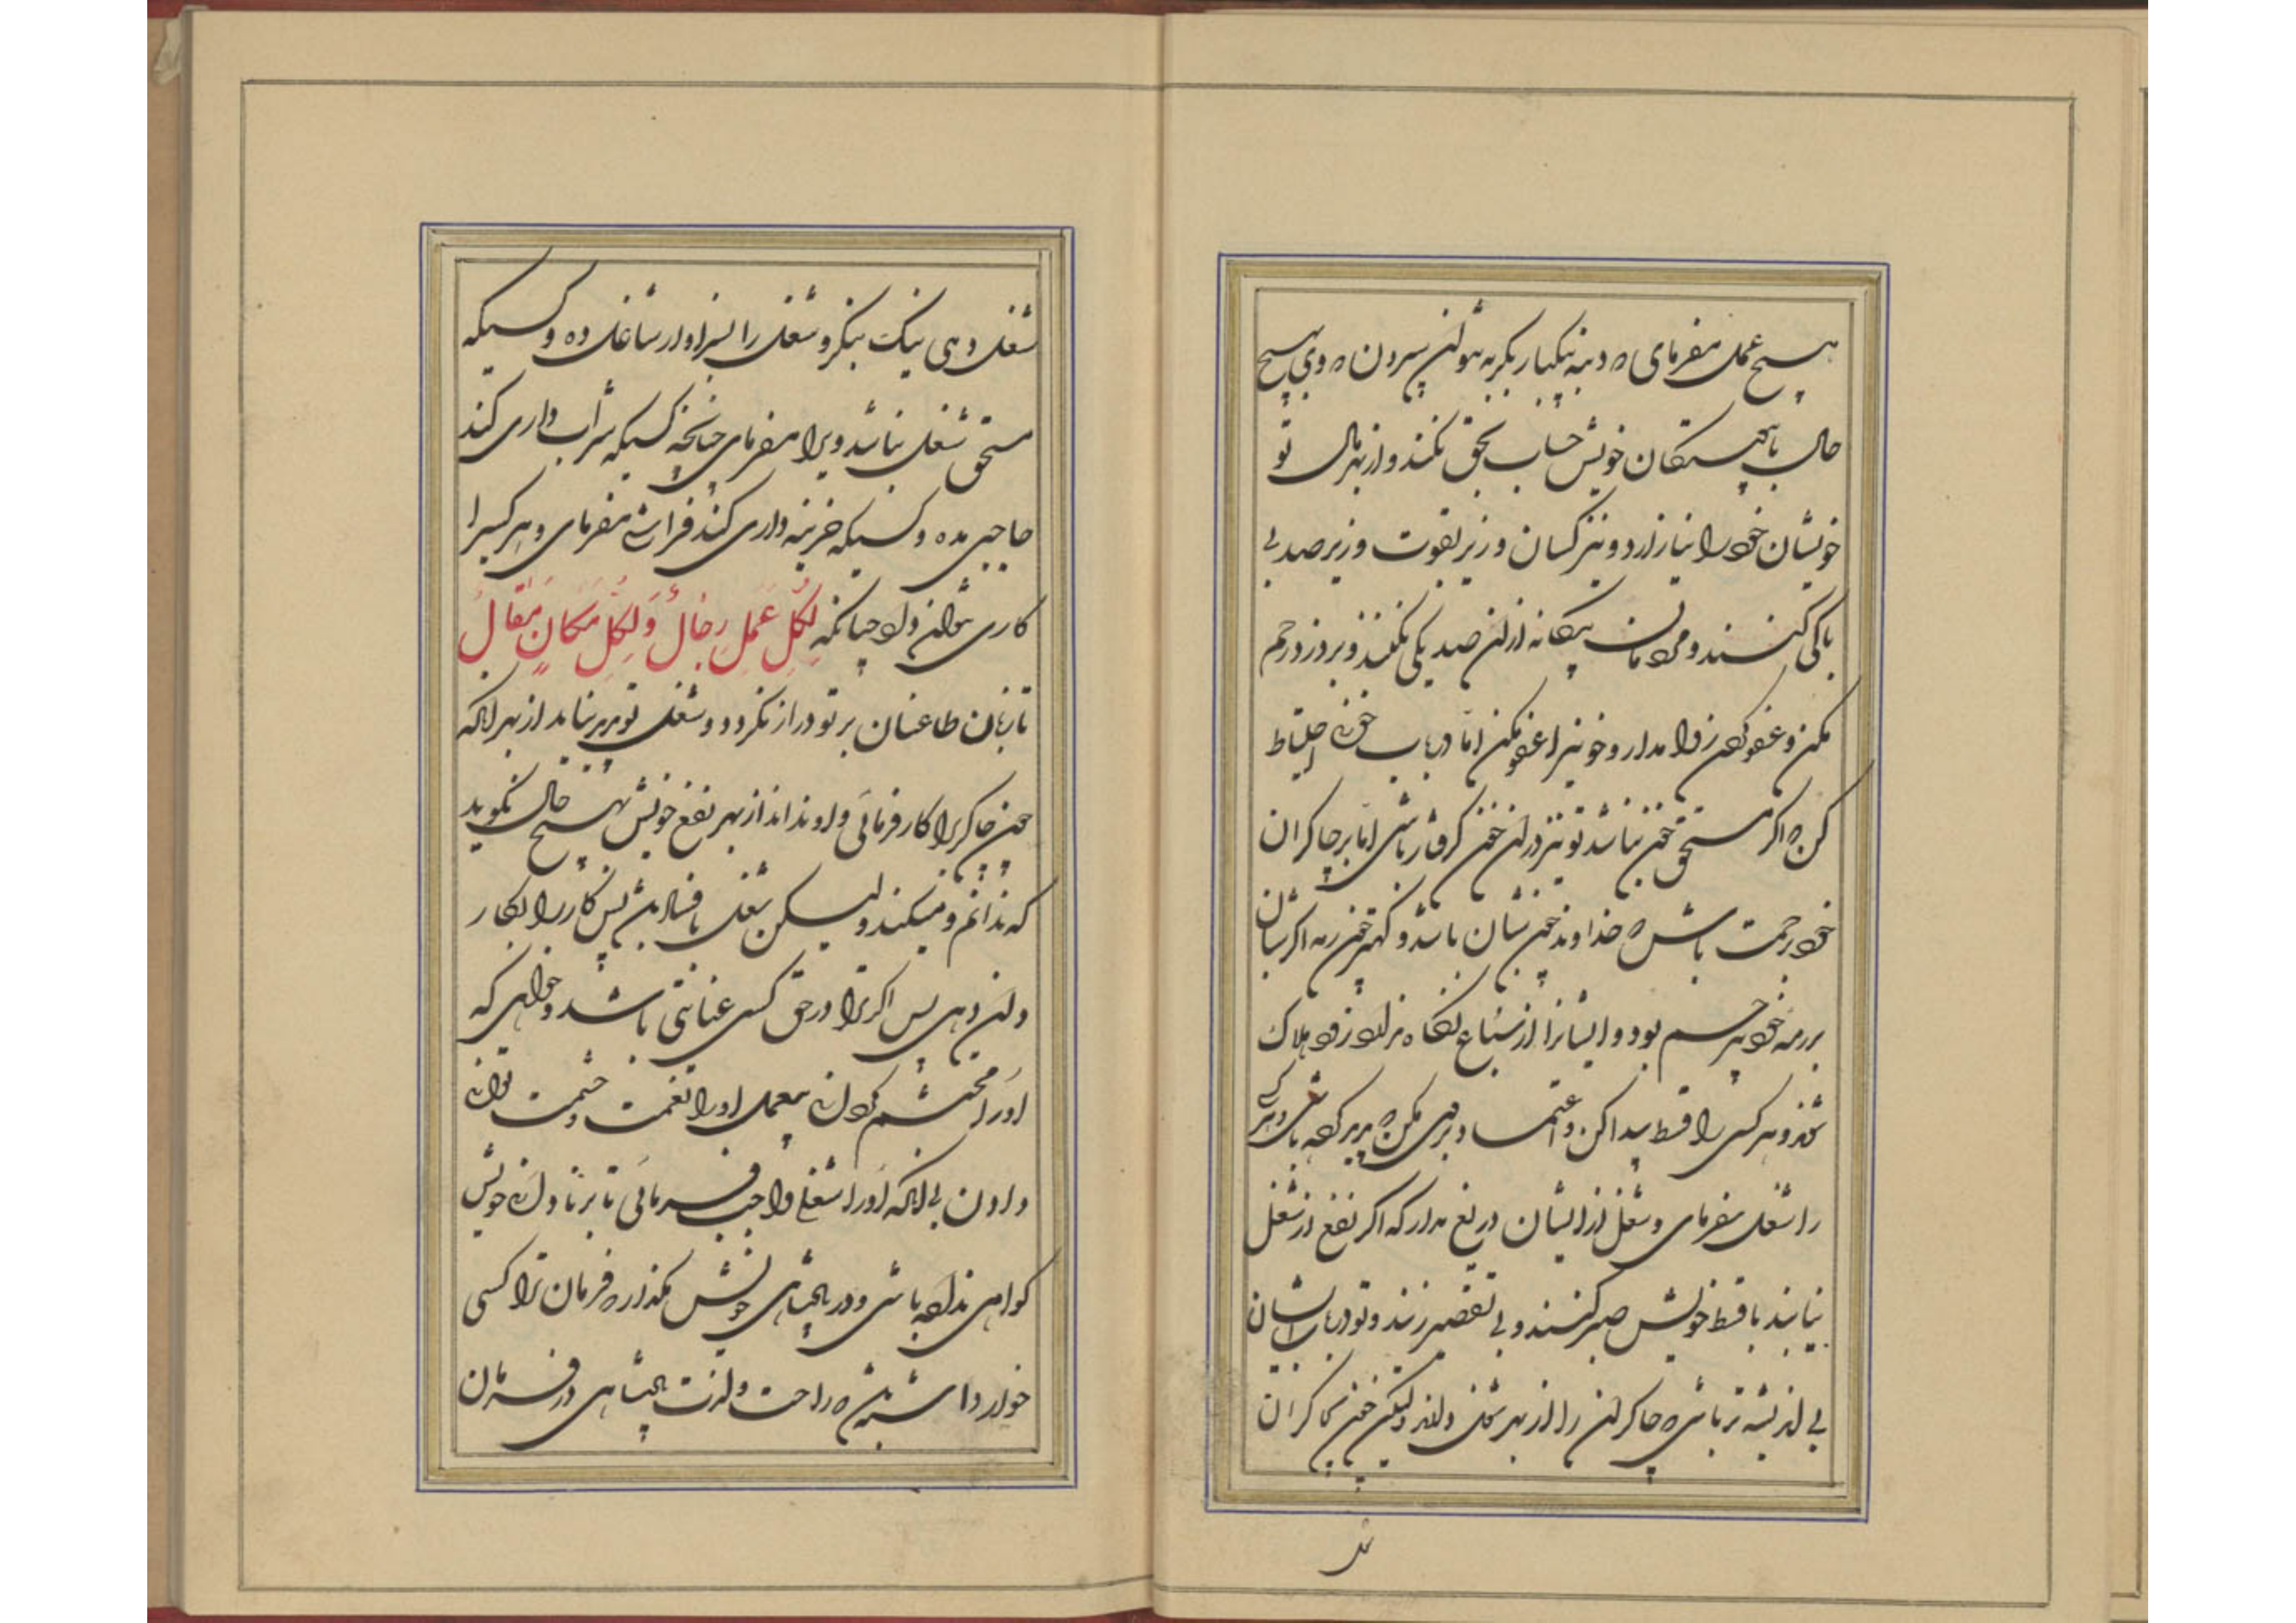 هیچ عمل مفرمای که دنبه بیکبار بگربه نتوان سپردن که وی بهیچ
حال با پیوستگان خویش حساب بحق نکند و از بهر مال تو
خویشان خود را نیازارد و نیز کسان وزیر بقوت وزیر صد بی
باکی کنند و مردمان بیگانه ازان صد یکی نکنند و بر دزد رحم
مکن و عفو کردن روا مدار و خونیرا عفو مکن اما در باب خونی احتیاط
کن که اگر مستحق خون نباشد تو نیز دران خون گرفتار باشی اما بر چاکران
خود برحمت باش که خداوند چون شبان باشد و کهتر چون رمه اگر شبان
بر رمه خود بیرحم بود و ایشانرا از سباع نگاه ندارد زود هلاک
شوند و هر کسی را قسط پیدا کن و اعتماد بر وی مکن که پدید کرده باشی و هر کسی
را شغل بفرمای و شغل از ایشان دریغ مدار که اگر نفع از شغل
بیابند با قسط خویش صبر کنند و بی تقصیر زیند و تو در باب ایشان
بی اندیشه تر باشی که چاکران را از بهر شغل دارند ولیکن چون چاکران
شغل
شغل دهی نیک بنگر و شغل را بسزاوار شاغل ده و کسیکه
مستحق شغل نباشد ویرا مفرمای چنانچه کسیکه شراب داری کند
حاجبی مده و کسیکه خزینه داری کند فراشی مفرمای و هر کسیرا
کاری نتوان داد چنانکه لِکُلِّ عَمَلٍ رِجَالٌ وَلِکُلِّ مَکَانٍ مَقَالٌ
تا زبان طاعنان بر تو دراز نگردد و شغل تو بر بر نیاید از بهر انکه
چون چاکریرا کار فرمائی و او نداند از بهر نفع خویش بهیچ حال نگوید
که ندانم و میکند ولیکن شغل با فساد باشد پس کار را بکار
دان دهی پس اگر ترا در حق کسی عنایتی باشد و خواهی که
او را محتشم گردانی بیعمل او را نعمت و حشمت توانی
دادن بی انکه او را شغل واجب فرمائی تا بر نادانی خویش
گواهی نداده باشی و در پادشاهی خویش مگذار که فرمان ترا کسی
خوار دارد که راحت و لذت پادشاهی در فرمان